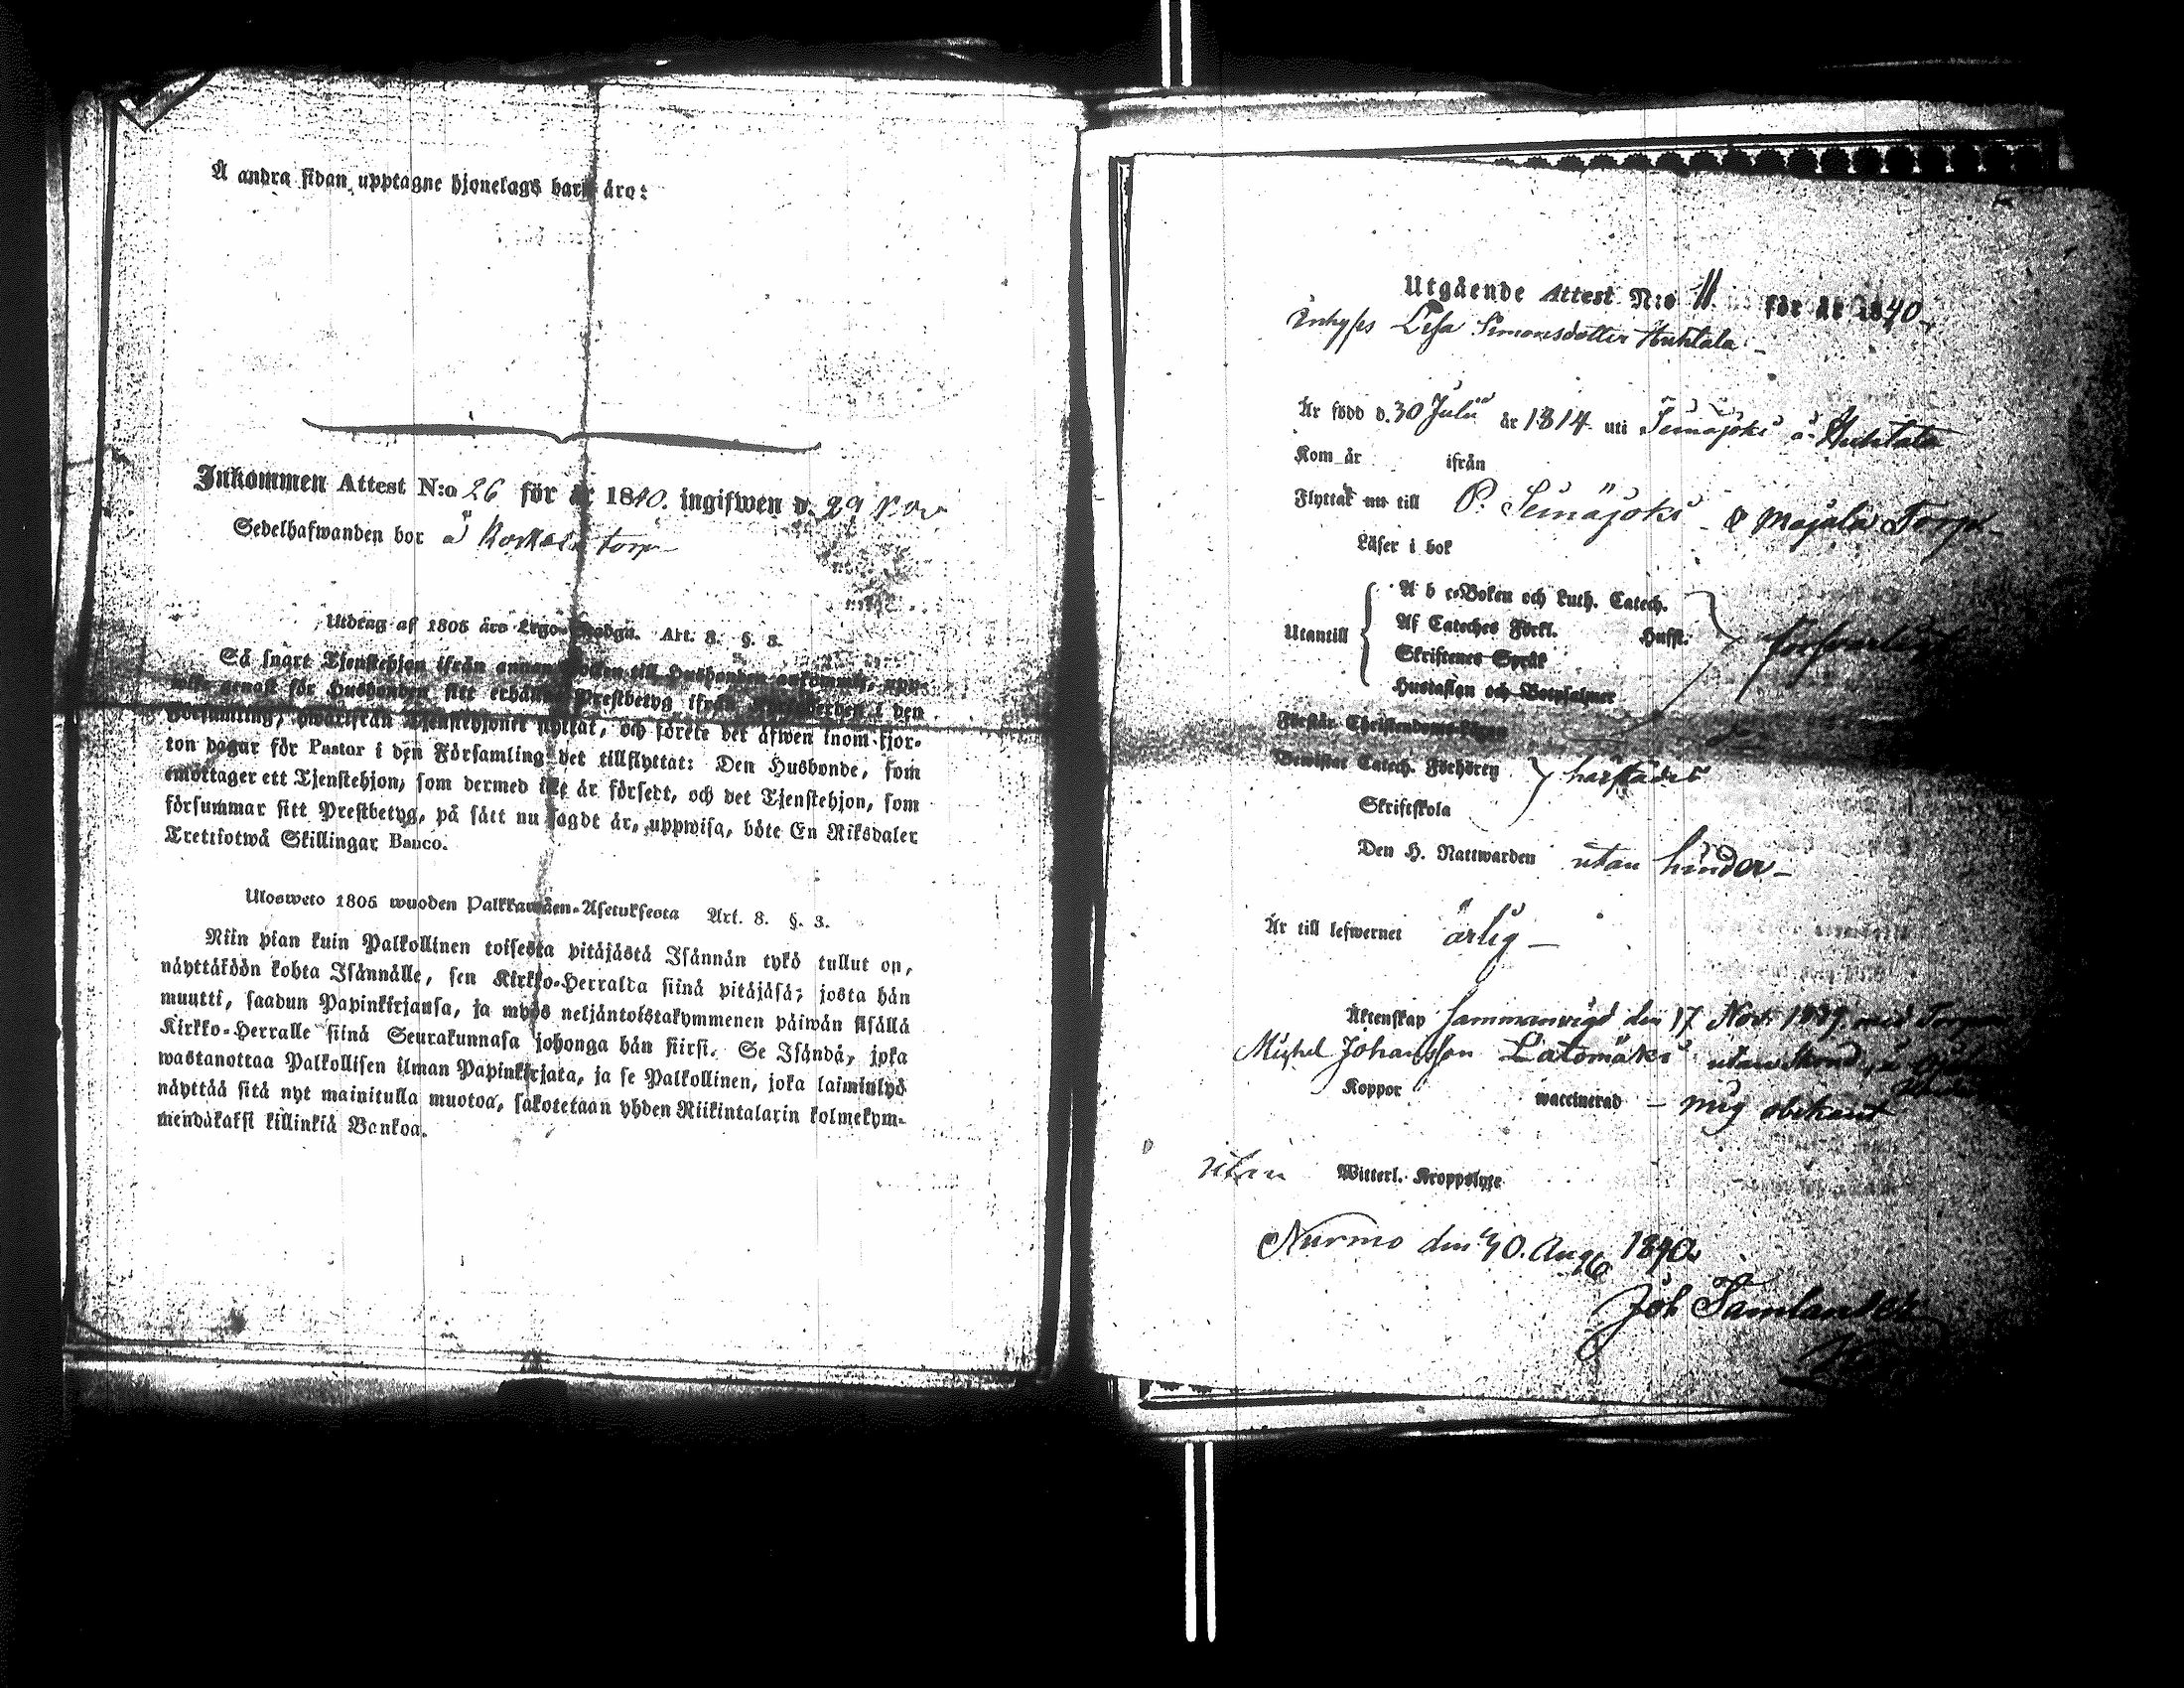 A andra sidan upptagne hjonelags barn äro:
Inkommen Attest N:o 26 för år 1840. ingifwen d. 29 Nov
Sedelhafwanden bor å torp
Utdrag af 1805 års Lego-Stadga. Art. 8. §. 3.
Så snart Tjenstehjon ifrån annan Socken till Husbonden ankommit, upp-
wise genast för Husbonden sitt erhållne Prestbetyg ifrån i den
Församling, hwarifrån Tjenstehjonet flyttat, och förete det äfwen inom fjor-
ton dagar för Pastor i den Församling det tillflyttat: Den Husbonde, som
emottager ett Tjenstehjon, som dermed icke är försedt, och det Tjenstehjon, som
försummar sitt Prestbetyg, på sätt nu sagdt är, uppwisa, böte En Riksdaler
Trettiotwå Skillingar Banco.
Ulosweto 1805 wuoden Palkkawäen-Asetuksesta Art. 8. §. 3.
Niin pian kuin Palkollinen toisesta pitäjästä Isännän tykö tullut on,
näyttäköön kohta Isännälle, sen Kirkko-Herralda siinä pitäjäsä; josta hän
muutti, saadun Papinkirjansa, ja myös neljäntoistakymmenen päiwän sisällä
Kirkko-Herralle siinä Seurakunnasa johonga hän siirsi. Se Isändä, joka
wastanottaa Palkollisen ilman Papinkirjata, ja se Palkollinen, joka laiminlyö
näyttää sitä nyt mainitulla muotoa, sakotetaan yhden Riikintalarin kolmekym-
mendäkaksi killinkiä Bankoa.
Utgående Attest N:o 11. för år 1840.
Inhyses Lisa Simonsdotter Huhtala
Är född d. 30 Julii år 1814 uti Seinäjoki å Huhtala
Kom år ifrån
Flyttar nu till P. Seinäjoki Majala Torp
Läser i bok
A b c-Boken och Luth. Catech.
Utantill Af Cateches Förkl. Hufst. försvarligt
Skriftenes Språk
Hustaflan och Botpsalmer
Förstår Christendoms-
Bewistat Catech. Förhören härstädes
Skriftskola
Den H. Nattwarden utan hinder
Är till lefwernet ärlig
Äktenskap Sammanvigd den 17 Nov. 1839 med
Michel Johansson Latomäki
Koppor waccinerad mig obekant
utan Witterl. Kroppslyte
Nurmo den 30. Aug 1840
Joh